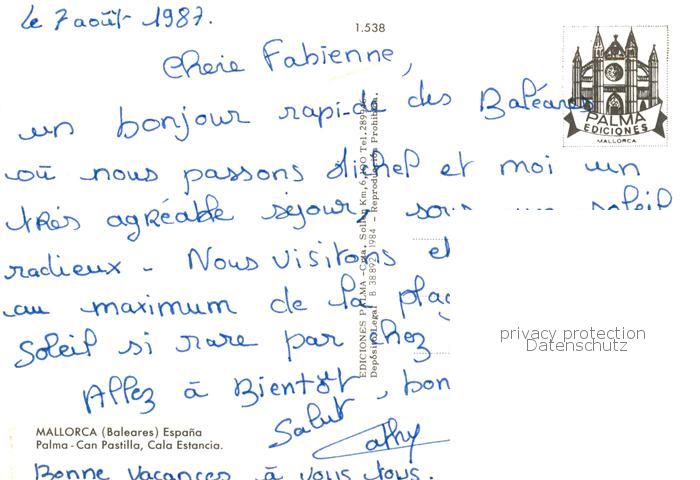 Le 7 août 1987.
1.538
Cherie Fabienne,
un bonjour rapide des Baléares
PALMA
EDICIONES
MALLORCA
où nous passons Michel et moi un
très agréable séjour, sous un soleil
radieux - Nous visitons et
au maximum de la plag
Soleil si rare par chez
privacy protection
Datenschutz
Allez à Bientôt, bon
Salut
Cathy
EDICIONES PALMA - Ctra. Soller, Km, 6,100 Tel.
Depósito Legal B. 38.892 1984 - Reproducción Prohibida.
MALLORCA (Baleares) España
Palma - Can Pastilla, Cala Estancia.
Bonne vacances à vous tous.